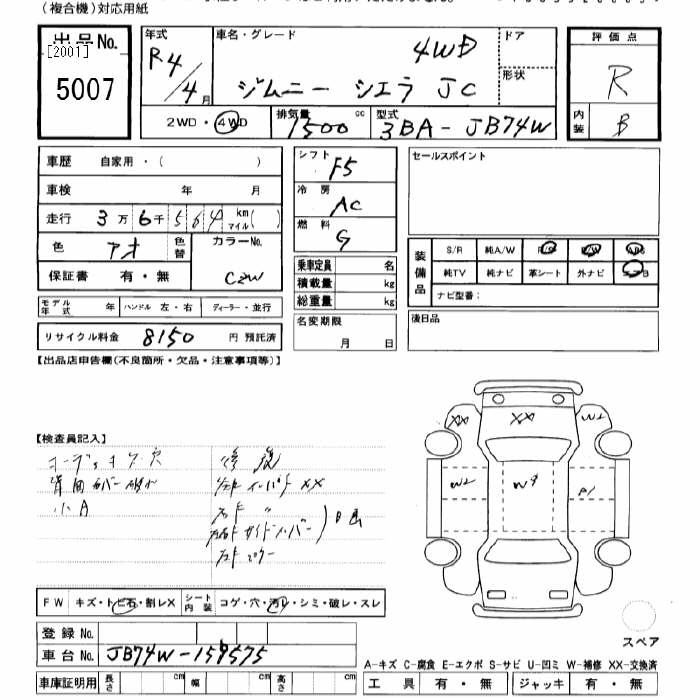 (複合機)対応用紙
出品No.
[2001]
5007
年式 R4/4月
車名・グレード 4WD
ジムニー シエラ JC
ドア
形状
2WD・4WD
排気量 1500 cc
型式 3BA-JB74W
評価点
R
内装 B
車歴 自家用・( )
車検 年 月
走行 3万6千564 km マイル( )
色 アオ 色替
カラーNo. CZW
保証書 有・無
モデル年式 年 ハンドル 左・右 ディーラー・並行
リサイクル料金 8150 円 預託済
シフト F5
冷房 AC
燃料 G
乗車定員 名
積載量 kg
総重量 kg
名変期限
月 日
セールスポイント
装備品
S/R 純A/W P/S P/W ABS
純TV 純ナビ 革シート 外ナビ
ナビ型番:
後日品
【出品店申告欄(不良箇所・欠品・注意事項等)】
【検査員記入】
修復
小A
FW キズ・トビ石・割レX シート内装 コゲ・穴・汚レ・シミ・破レ・スレ
登録No.
車台No. JB74W-159575
車庫証明用 長さ cm 幅 cm 高さ cm
XX
XX
W2
W2
W3
A1
スペア
A-キズ C-腐食 E-エクボ S-サビ U-凹ミ W-補修 XX-交換済
工具 有・無 ジャッキ 有・無